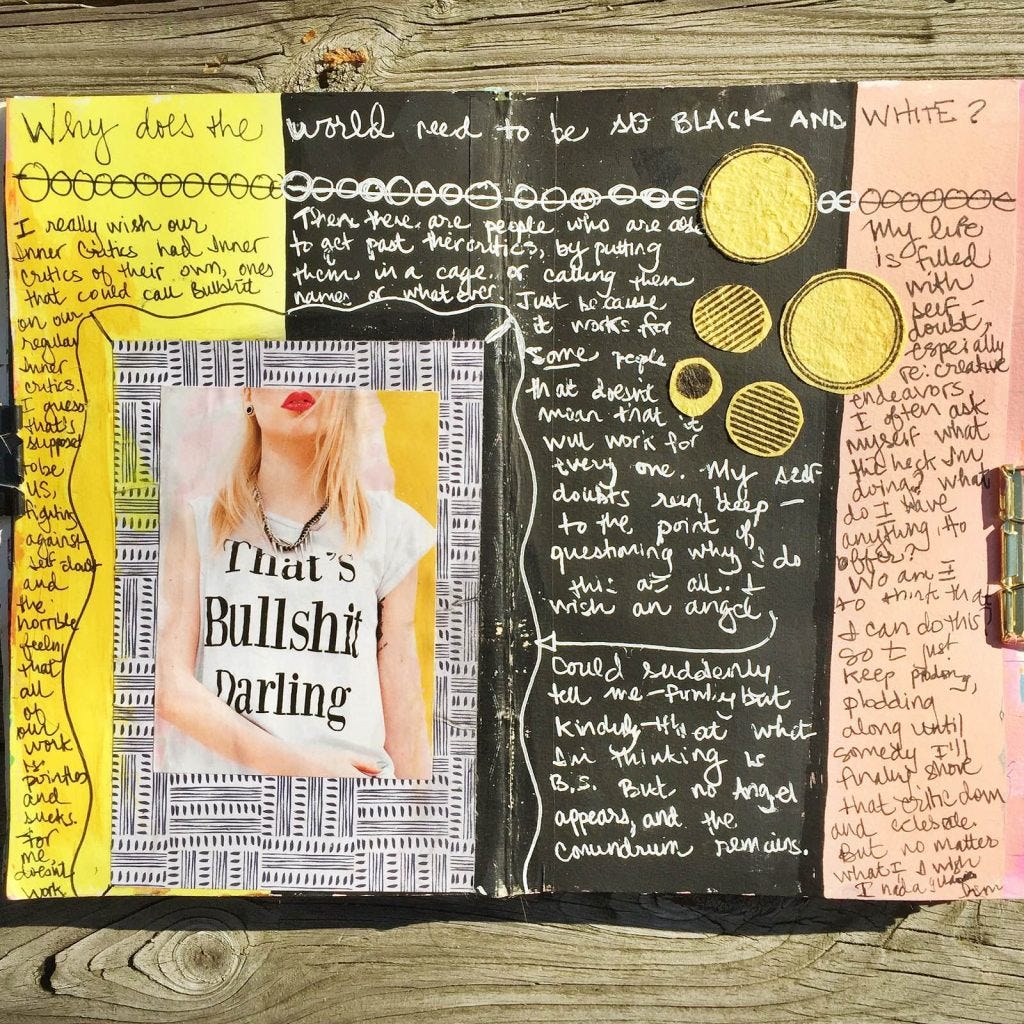 Why does the world need to be so BLACK AND WHITE?
I really wish our
Inner Critics had Inner
critics of their own, ones
that could call Bullshit
on our
regular
Inner
critics.
I guess
that's
supposed
to be
us,
fighting
against
self doubt
and
the
horrible
feeling
that
all
of
our
work
is
pointless
and
sucks.
for
me,
doesn't
work.
Then there are people who are able
to get past their critics, by putting
them in a cage or calling them
names or whatever. Just because
it works for
Some people
that doesn't
mean that it
will work for
every one. My self
doubts run deep —
to the point of
questioning why I do
this at all. I
wish an angel
Could suddenly
tell me - firmly but
kindly - that what
I'm thinking is
B.S. But no Angel
appears, and the
conundrum remains.
My life
is filled
with
self-
doubt,
especially
re: creative
endeavors
I often ask
myself what
the heck I'm
doing? what
do I have
anything to
offer?
Who am I
to think that
I can do this
so I just
keep plodding,
plodding
along until
someday I'll
finally shove
that critic down
and
But no matter
what I wish
I had a
That's
Bullshit
Darling